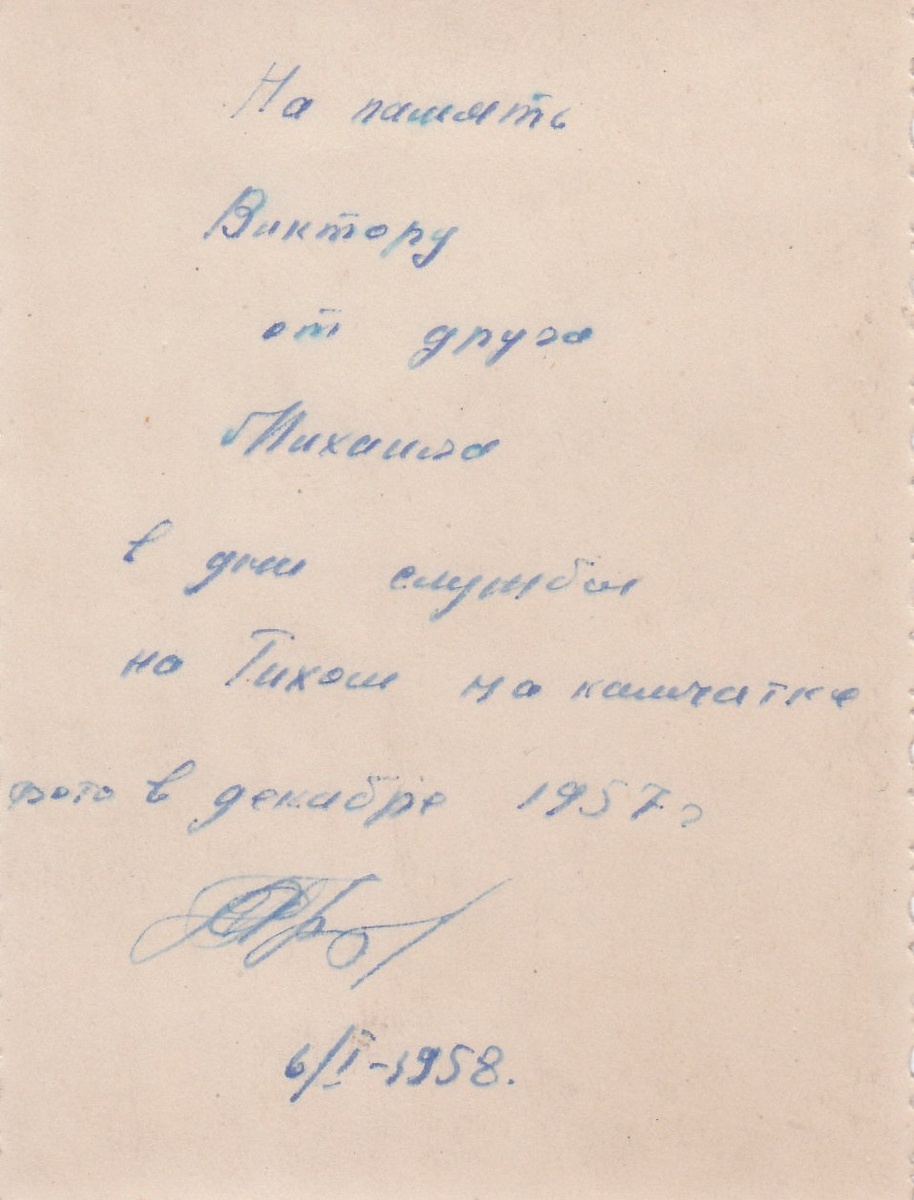 На память
Виктору
от друга
Михаила
в дни службы
на Тихом на камчатке
фото в декабре 1957 г
6/I-1958.